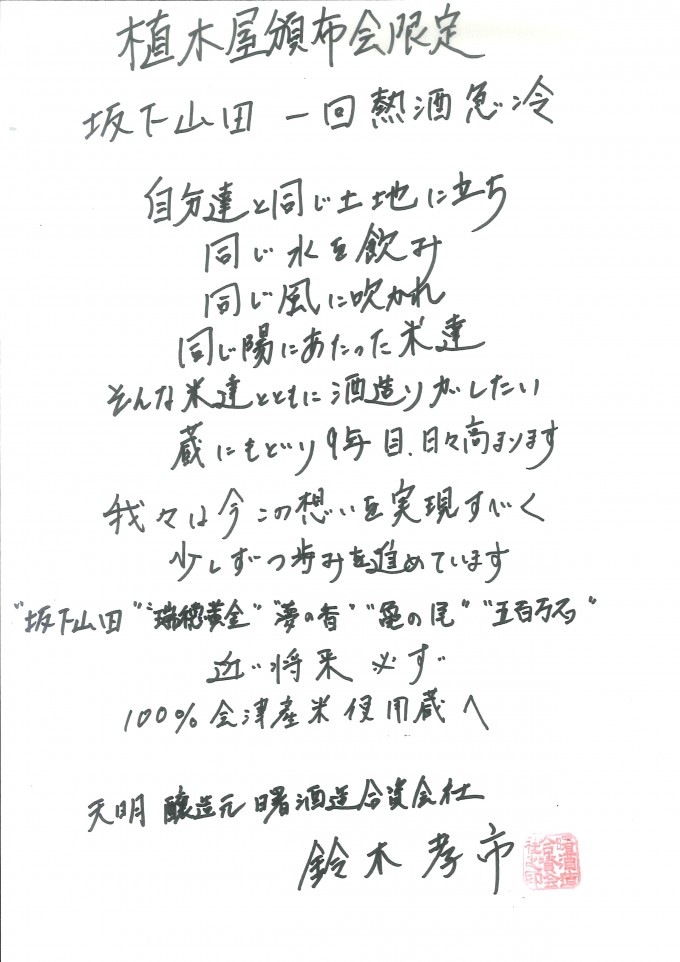 植木屋頒布会限定
坂下山田 一回熱酒急冷
自分達と同じ土地に立ち
同じ水を飲み
同じ風に吹かれ
同じ陽にあたった米達
そんな米達とともに酒造りがしたい
蔵にもどり9年目、日々高まります
我々は今この想いを実現すべく
少しずつ歩みを進めています
"坂下山田" "瑞穂黄金" "夢の香" "亀の尾" "五百万石"
近い将来 必ず
100% 会津産米使用蔵へ
天明 醸造元 曙酒造合資会社
鈴木孝市
曙酒造合資会社之印